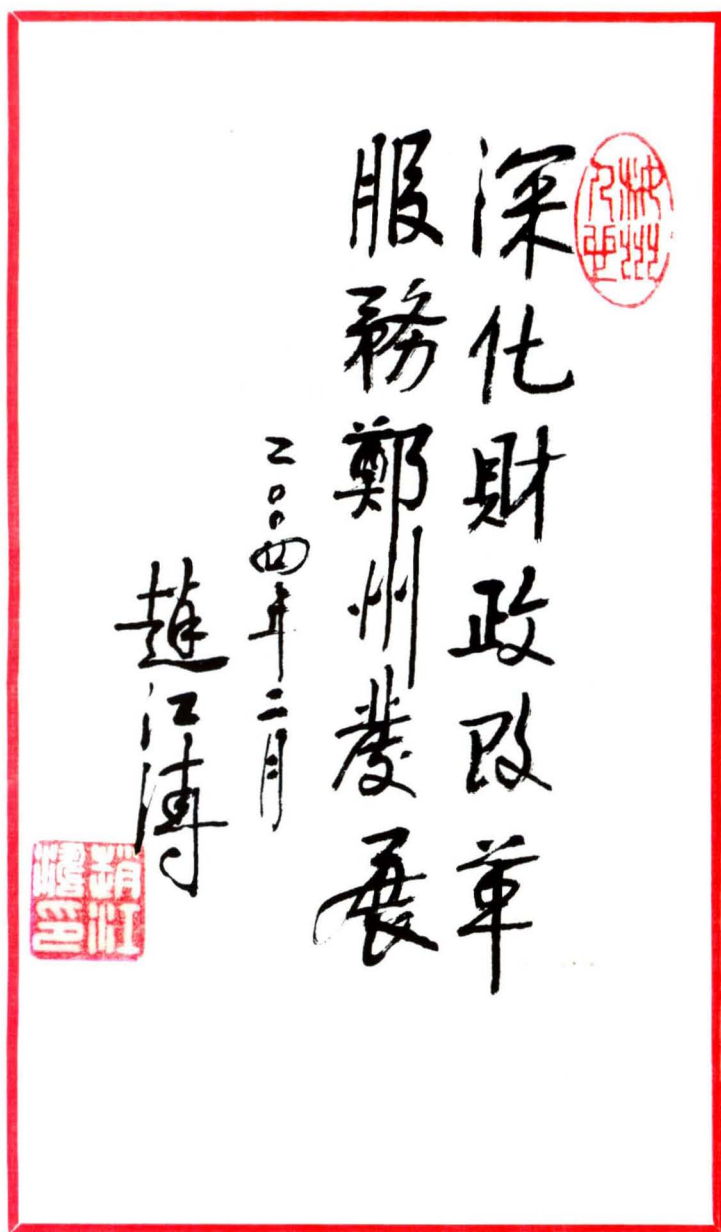 深化財政改革
服務鄭州發展
二〇〇四年二月
趙江濤
趙江濤印